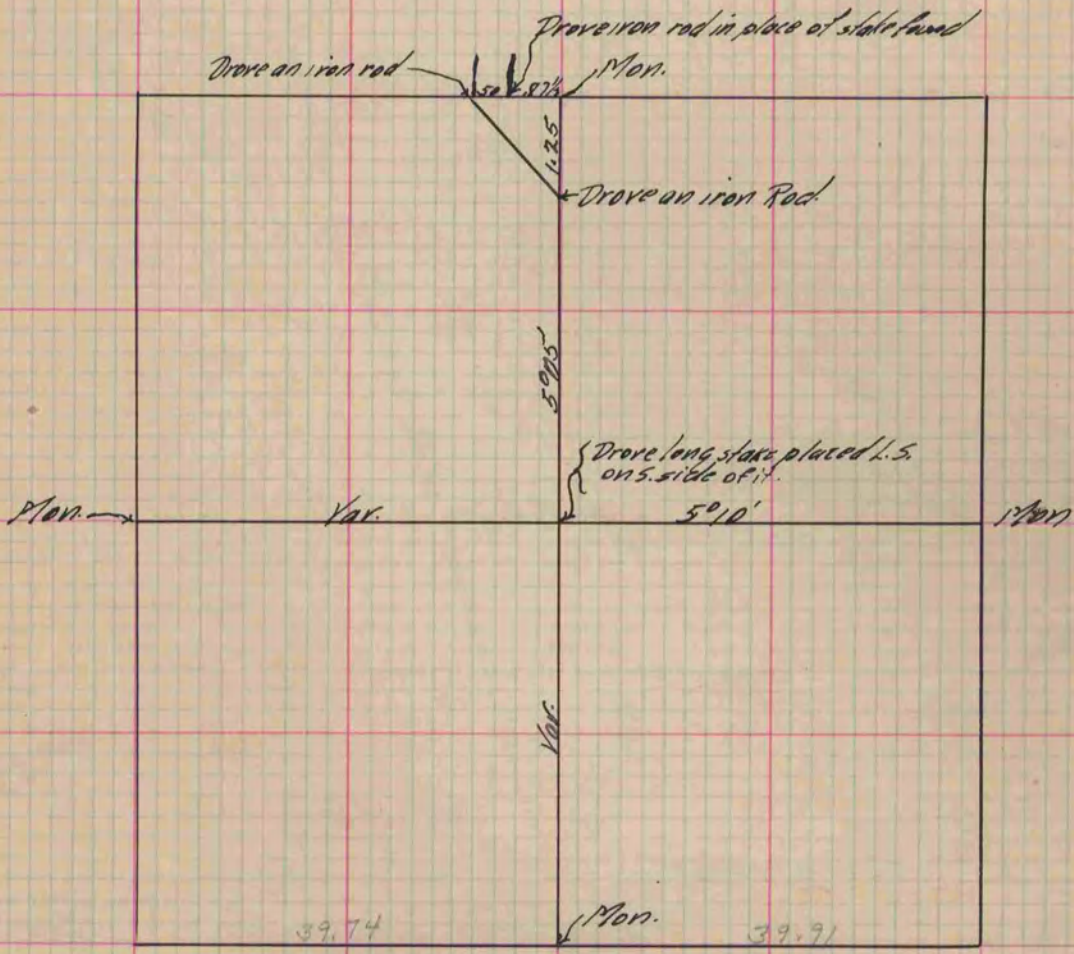 Drove iron rod in place of stake found
Drove an iron rod
Mon.
.50
.87½
1.25
Drove an iron Rod.
5°05'
Drove long stake placed L.S.
on S. side of it.
Mon.
Var.
5°10'
Mon
Var.
Mon.
39.74
39.91